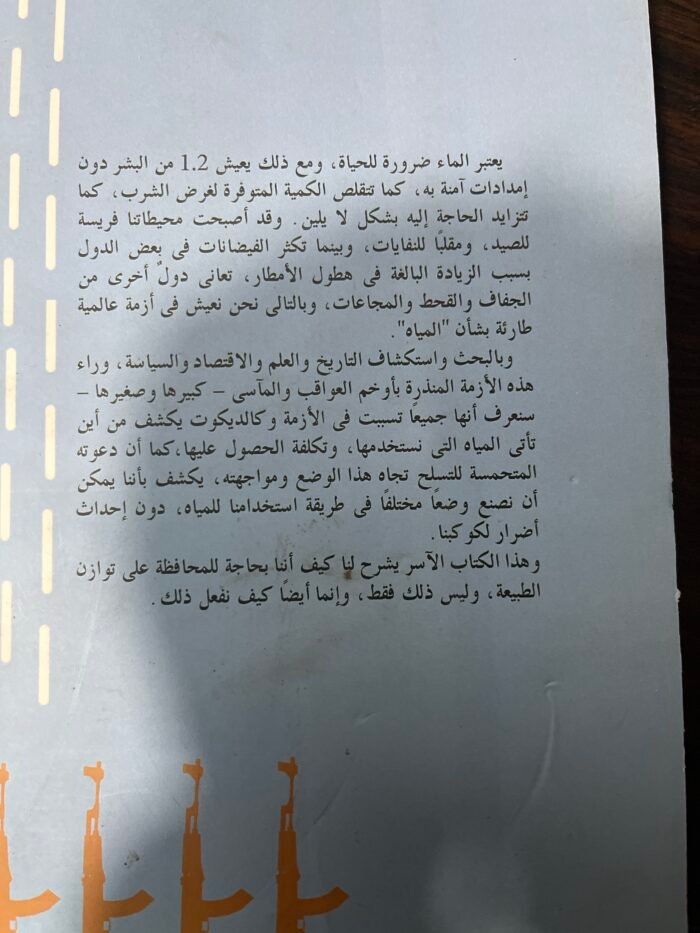 يعتبر الماء ضرورة للحياة، ومع ذلك يعيش 1.2 من البشر دون
إمدادات آمنة به، كما تتقلص الكمية المتوفرة لغرض الشرب، كما
تتزايد الحاجة إليه بشكل لا يلين. وقد أصبحت محيطاتنا فريسة
للصيد، ومقلبًا للنفايات، وبينما تكثر الفيضانات فى بعض الدول
بسبب الزيادة البالغة فى هطول الأمطار، تعانى دولٌ أخرى من
الجفاف والقحط والمجاعات، وبالتالى نحن نعيش فى أزمة عالمية
طارئة بشأن "المياه".
وبالبحث واستكشاف التاريخ والعلم والاقتصاد والسياسة، وراء
هذه الأزمة المنذرة بأوخم العواقب والمآسى – كبيرها وصغيرها –
سنعرف أنها جميعًا تسببت فى الأزمة وكالديكوت يكشف من أين
تأتى المياه التى نستخدمها، وتكلفة الحصول عليها،كما أن دعوته
المتحمسة للتسلح تجاه هذا الوضع ومواجهته، يكشف بأننا يمكن
أن نصنع وضعًا مختلفًا فى طريقة استخدامنا للمياه، دون إحداث
أضرار لكوكبنا.
وهذا الكتاب الآسر يشرح لنا كيف أننا بحاجة للمحافظة على توازن
الطبيعة، وليس ذلك فقط، وإنما أيضًا كيف نفعل ذلك.